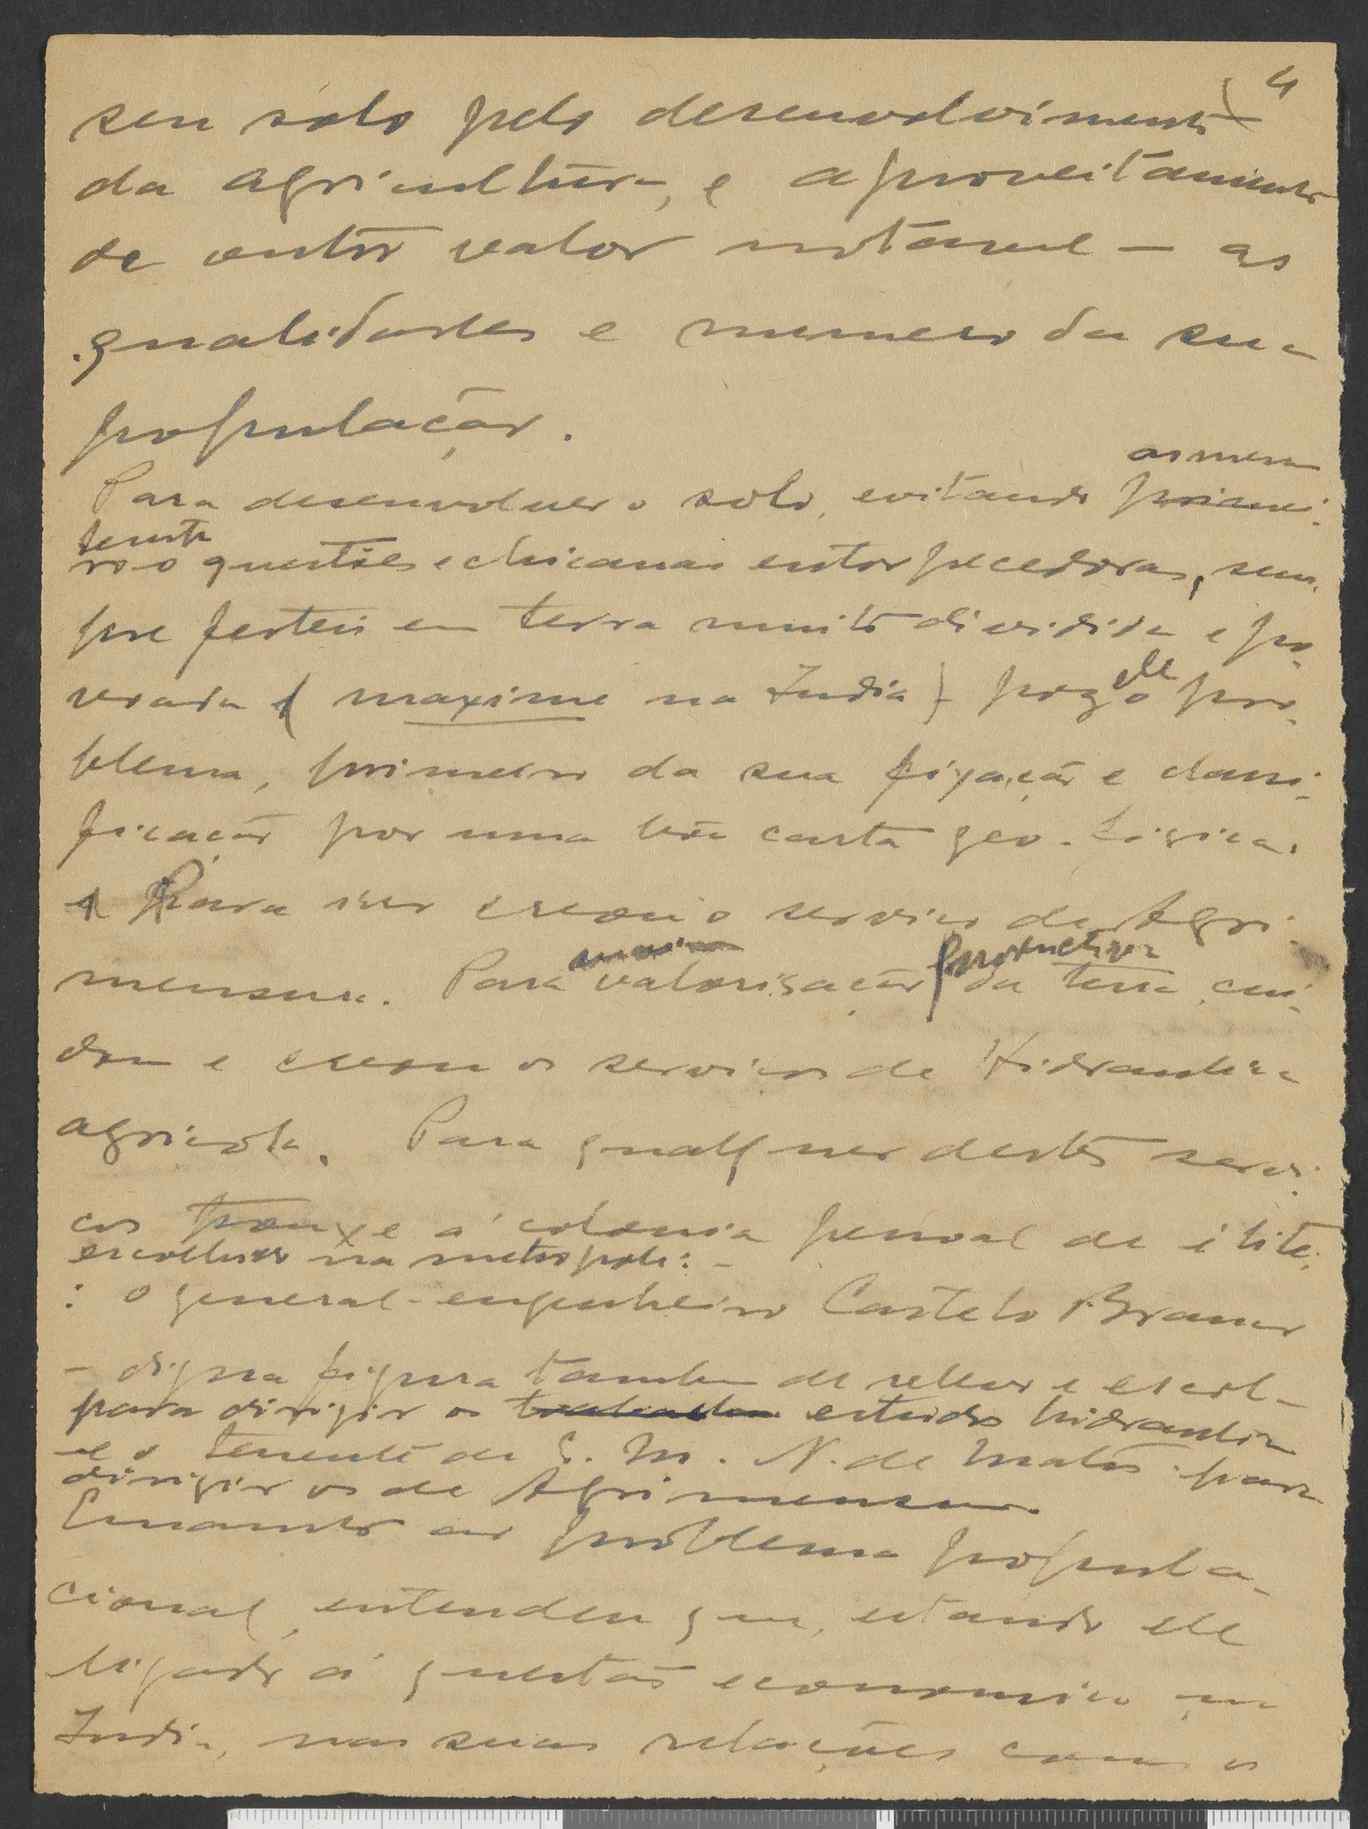 4
seu solo pelo desenvolvimento
da agricultura, e aproveitamento
de outro valor notavel — as
qualidades e numero da sua
população.
Para desenvolver o solo, evitando
questões e chicanas entorpecedoras, sem-
pre ferteis em terra muito dividida e po-
voada (maxime na India) poz elle o pro-
blema, primeiro da sua fixação e classi-
ficação por uma bôa carta geo-
Para isso creou o serviço de Agri-
mensura. Para valorisação productiva da terra cui-
dou e creou os serviços de Hidraulica
agricola. Para qualquer destes servi-
ços trouxe á colonia pessoal de élite,
escolhido na metropole: -
: o general-engenheiro Castelo Branco
- digna figura tambem de relevo e escol -
para dirigir os estudos hidraulicos
- e o tenente de E. M. N. de Matos para
dirigir os de Agrimensura.
Enquanto ao problema popula-
cional, entendeu que, estando elle
ligado á questão economica na
India, nas suas relações com os